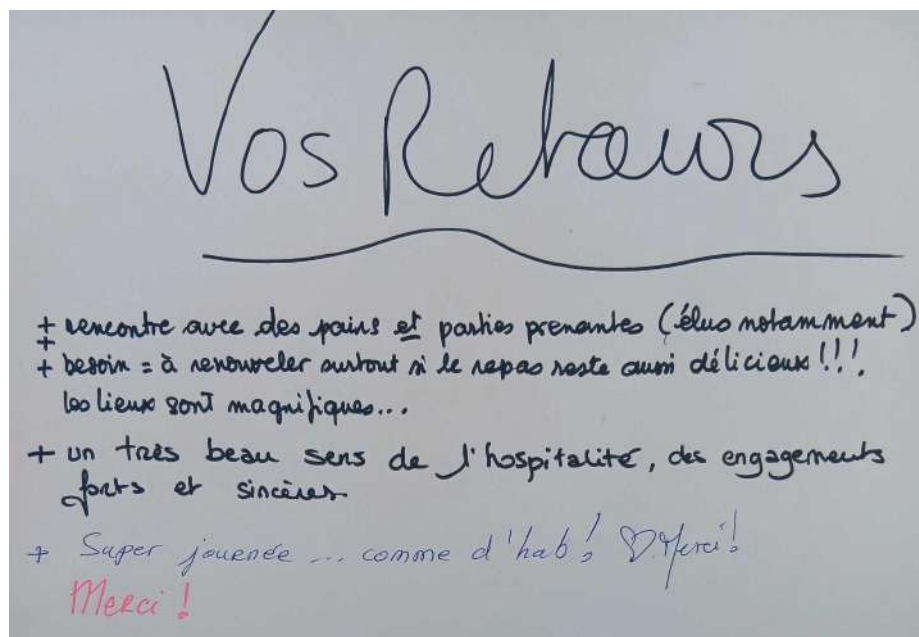 Vos Retours
+ rencontre avec des pairs et parties prenantes (élus notamment)
+
+ besoin = à renouveler surtout si le repas reste aussi délicieux !!!
les lieux sont magnifiques...
+ un très beau sens de l'hospitalité, des engagements
forts et sincères
+ Super journée ... comme d'hab ! ♡ Merci !
Merci !